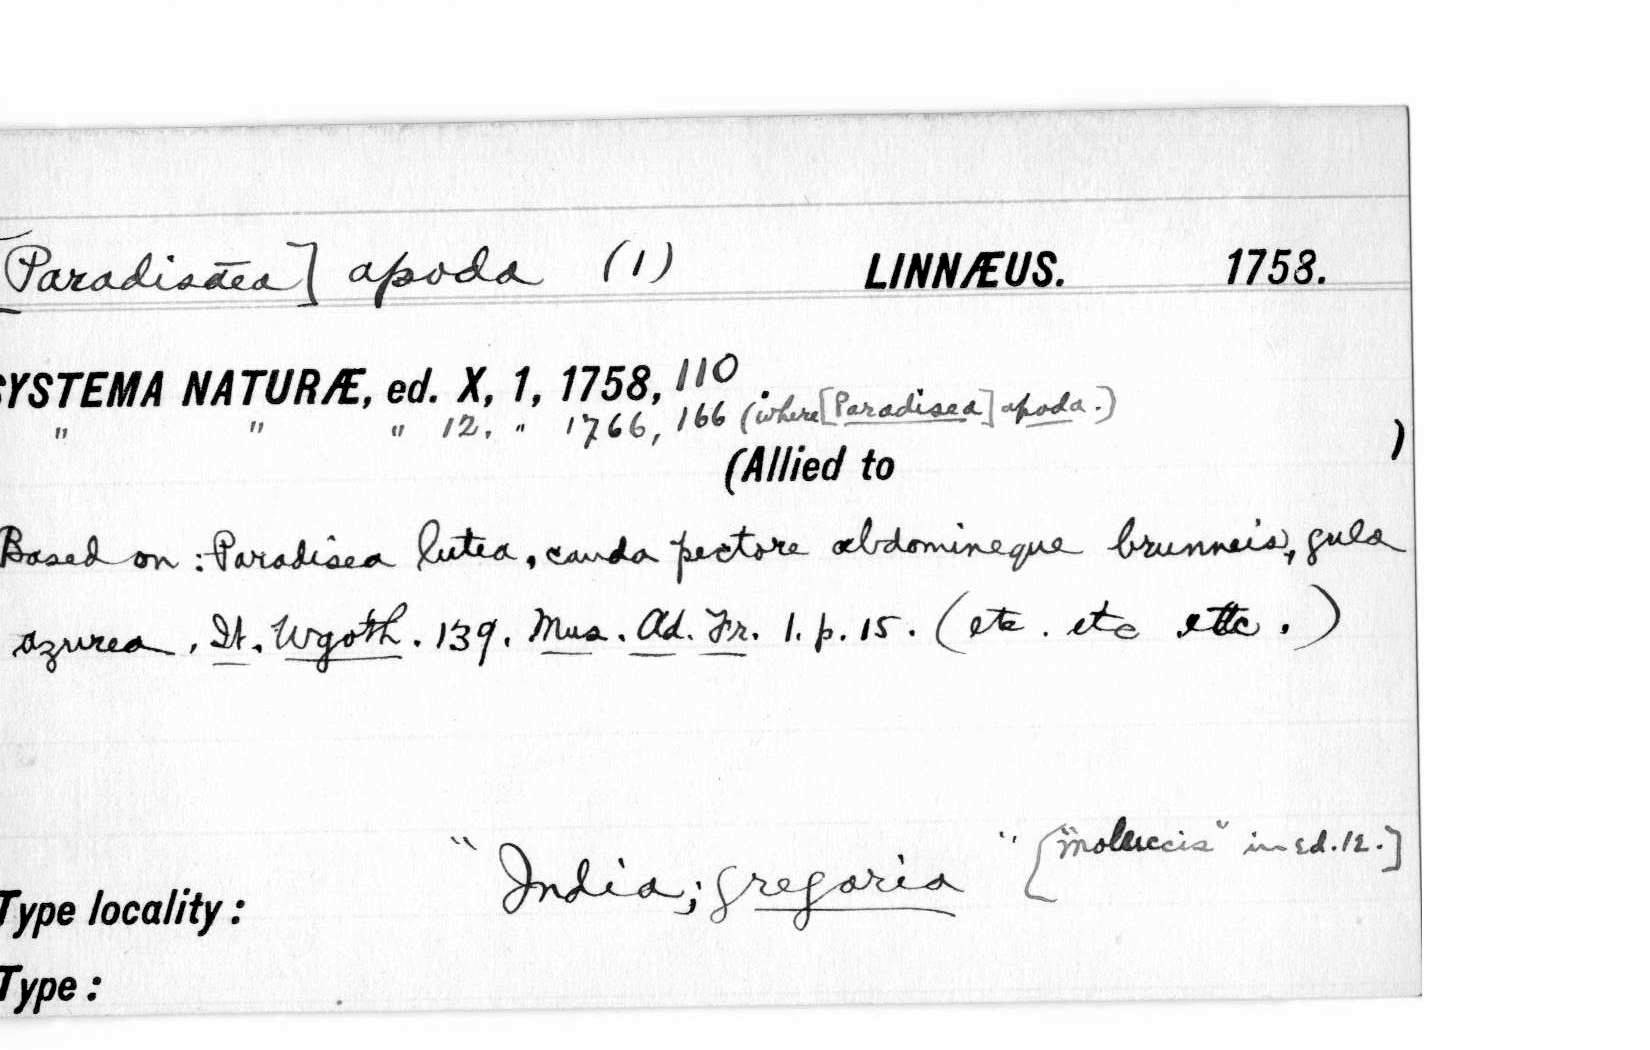 [Paradisæa] apoda (1) LINNÆUS. 1758.
SYSTEMA NATURÆ, ed. X, 1, 1758, 110.
" " " 12, " 1766, 166 (where [Paradisea] apoda.)
(Allied to )
Based on: Paradisea lutea, cauda pectore abdomineque brunneis, gula
azurea. It. Wgoth. 139. Mus. Ad. Fr. 1. p. 15. (etc. etc etc.)
"India; gregaria" ["Moluccis" in Ed. 12.]
Type locality:
Type: